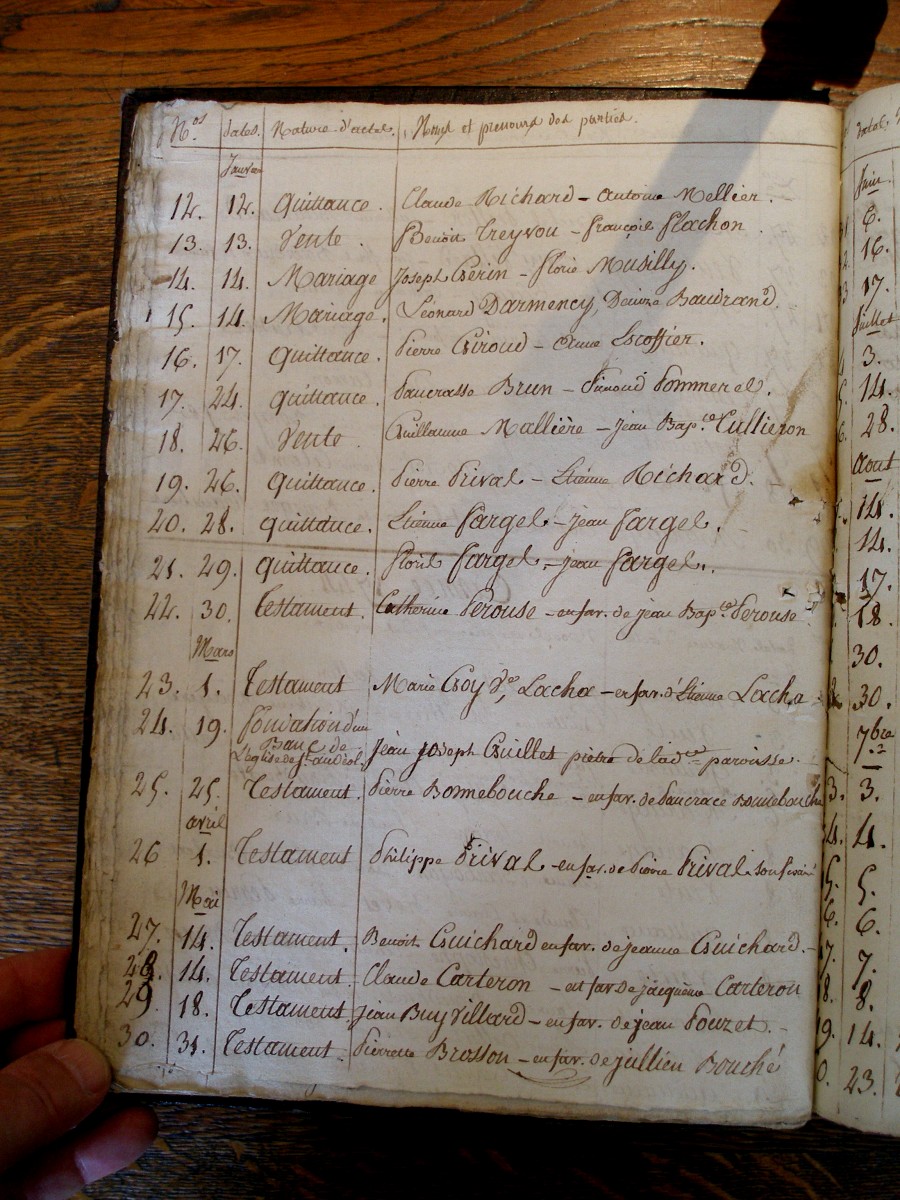 Nos dates. Nature d'actes. Noms et prenoms des parties.
Janvier
12. 12. quittance. Claude Richard - Antoine Mellier.
13. 13. Vente. Benoit Treyvou - françois flachon.
14. 14. Mariage Joseph Gérin - florie Musilly.
15. 14. Mariage. Léonard Darmency, Baudrand.
16. 17. quittance. Pierre Giroud - Anne Escoffier.
17. 24. quittance. Pancrasse Brun - Pommerel.
18. 26. Vente. Guillaume Mallière - jean Bap.te Cullieron
19. 26. quittance. Pierre Prival - Etienne Richard.
20. 28. quittance. Etienne fargel - jean fargel.
21. 29. quittance. fargel - jean fargel.
22. 30. Testament. Catherine Perouse - en fav. de jean Bap.te Perouse
Mars
23. 1. Testament Marie Goy V.e Lacha - en fav. d'Etienne Lacha
24. 19. fondation d'un
Banc de
L'eglise de St. andéol. Jean joseph Guillet prêtre de lad.te paroisse.
25. 25. Testament. Pierre Bonnebouche - en fav. de Pancrace Bonnebouche
avril
26 1. Testament Philippe Prival - en fav. de Pierre Prival son frère
Mai
27. 14. Testament. Benoit Guichard en fav. de jeanne Guichard.
28. 14. Testament. Claude Carteron - en fav. de jacquême Carteron
29 18. Testament. jean Buyvillard - en fav. de jean Pouzet.
30. 31. Testament. Pierrette Brosson - en fav. de jullien Bouché
dates.
Juin.
6.
16.
17.
Juillet
3.
14.
28.
Aout
14.
14.
17.
18.
30.
30.
7bre
3. 3.
4. 4.
5. 5.
6. 6.
7. 7.
8. 8.
9. 14.
0. 23.